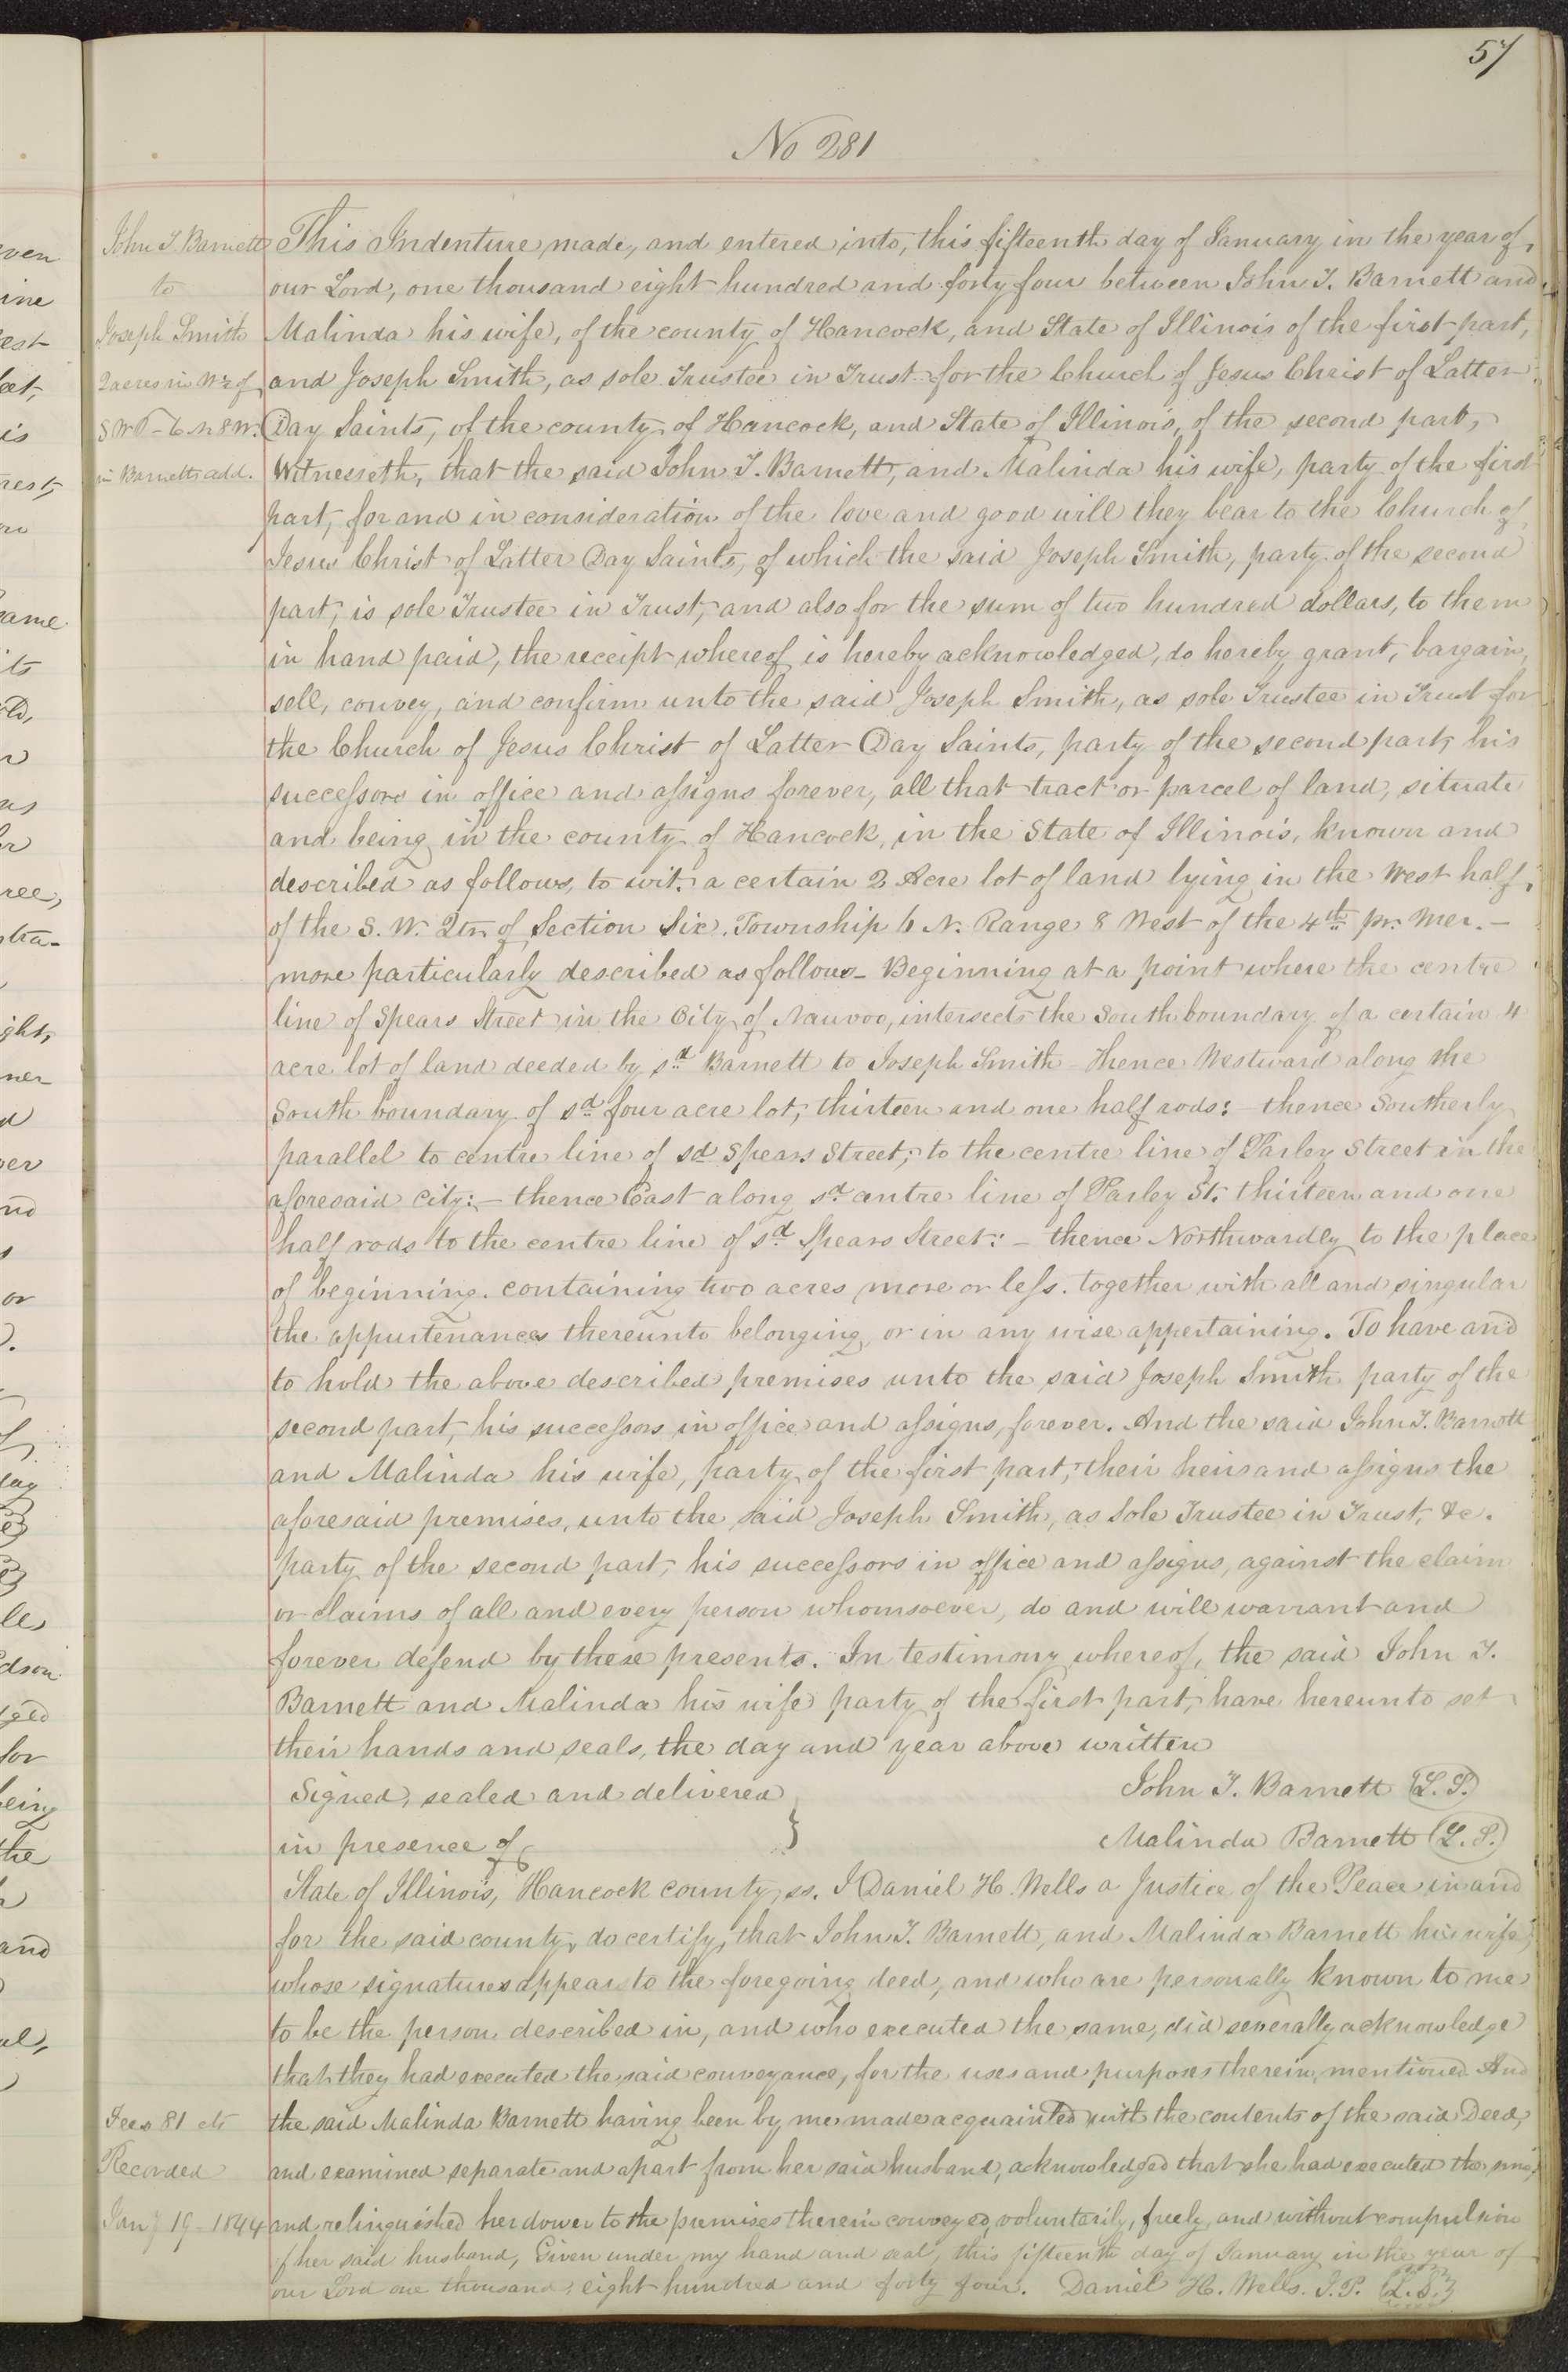 57
No 281
John T. Barnett
to
Joseph Smith
2 acres in W½ of
S W - 6 N 8 W.
in Barnetts add.
This Indenture made, and entered into, this fifteenth day of January in the year of
our Lord, one thousand eight hundred and forty four between John T. Barnett and
Malinda his wife, of the county of Hancock, and State of Illinois of the first part,
and Joseph Smith, as sole Trustee in Trust for the Church of Jesus Christ of Latter
Day Saints, of the county of Hancock, and State of Illinois, of the second part,
Witnesseth, that the said John T. Barnett, and Malinda his wife, party of the first
part, for and in consideration of the love and good will they bear to the Church of
Jesus Christ of Latter Day Saints, of which the said Joseph Smith, party of the second
part, is sole Trustee in Trust, and also for the sum of two hundred dollars, to them
in hand paid, the receipt whereof is hereby acknowledged, do hereby grant, bargain,
sell, convey, and confirm unto the said Joseph Smith, as sole Trustee in Trust for
the Church of Jesus Christ of Latter Day Saints, party of the second part, his
successors in office and assigns forever, all that tract or parcel of land, situate
and being in the county of Hancock, in the State of Illinois, known and
described as follows, to wit. a certain 2 Acre lot of land lying in the West half
of the S. W. Qtr. of Section Six. Township 6 N. Range 8 West of the 4th pr. Mer. —
more particularly described as follows— Beginning at a point where the centre
line of Spears Street in the City of Nauvoo, intersects the South boundary of a certain 4
acre lot of land deeded by sd Barnett to Joseph Smith — thence Westward along the
South boundary of sd four acre lot, thirteen and one half rods: — thence Southerly
parallel to centre line of sd Spears Street, to the centre line of Parley Street in the
aforesaid city: — thence East along sd centre line of Parley St. thirteen and one
half rods to the centre line of sd Spears Street: — thence Northwardly to the place
of beginning. containing two acres more or less. together with all and singular
the appurtenances thereunto belonging, or in any wise appertaining. To have and
to hold the above described premises unto the said Joseph Smith party of the
second part, his successors in office and assigns, forever. And the said John T. Barnett
and Malinda his wife, party of the first part, their heirs and assigns the
aforesaid premises, unto the said Joseph Smith, as Sole Trustee in Trust, &c.
party of the second part, his successors in office and assigns, against the claim
or claims of all and every person whomsoever, do and will warrant and
forever defend by these presents. In testimony whereof, the said John T.
Barnett and Malinda his wife party of the first part, have hereunto set
their hands and seals, the day and year above written
Signed, sealed and delivered } John T. Barnett (L. S.)
in presence of Malinda Barnett (L. S.)
State of Illinois, Hancock county, ss. I Daniel H. Wells a Justice of the Peace in and
for the said county, do certify, that John T. Barnett, and Malinda Barnett his wife,
whose signatures appears to the foregoing deed, and who are personally known to me
to be the person described in, and who executed the same, did severally acknowledge
that they had executed the said conveyance, for the uses and purposes therein mentioned. And
the said Malinda Barnett having been by me made acquainted with the contents of the said Deed,
and examined separate and apart from her said husband, acknowledged that she had executed the same,
and relinquished her dower to the premises therein conveyed, voluntarily, freely, and without compulsion
of her said husband, Given under my hand and seal, this fifteenth day of January in the year of
our Lord one thousand, eight hundred and forty four. Daniel H. Wells. J. P. (L. S.)
Fees 81 cts
Recorded
Jany 19 - 1844